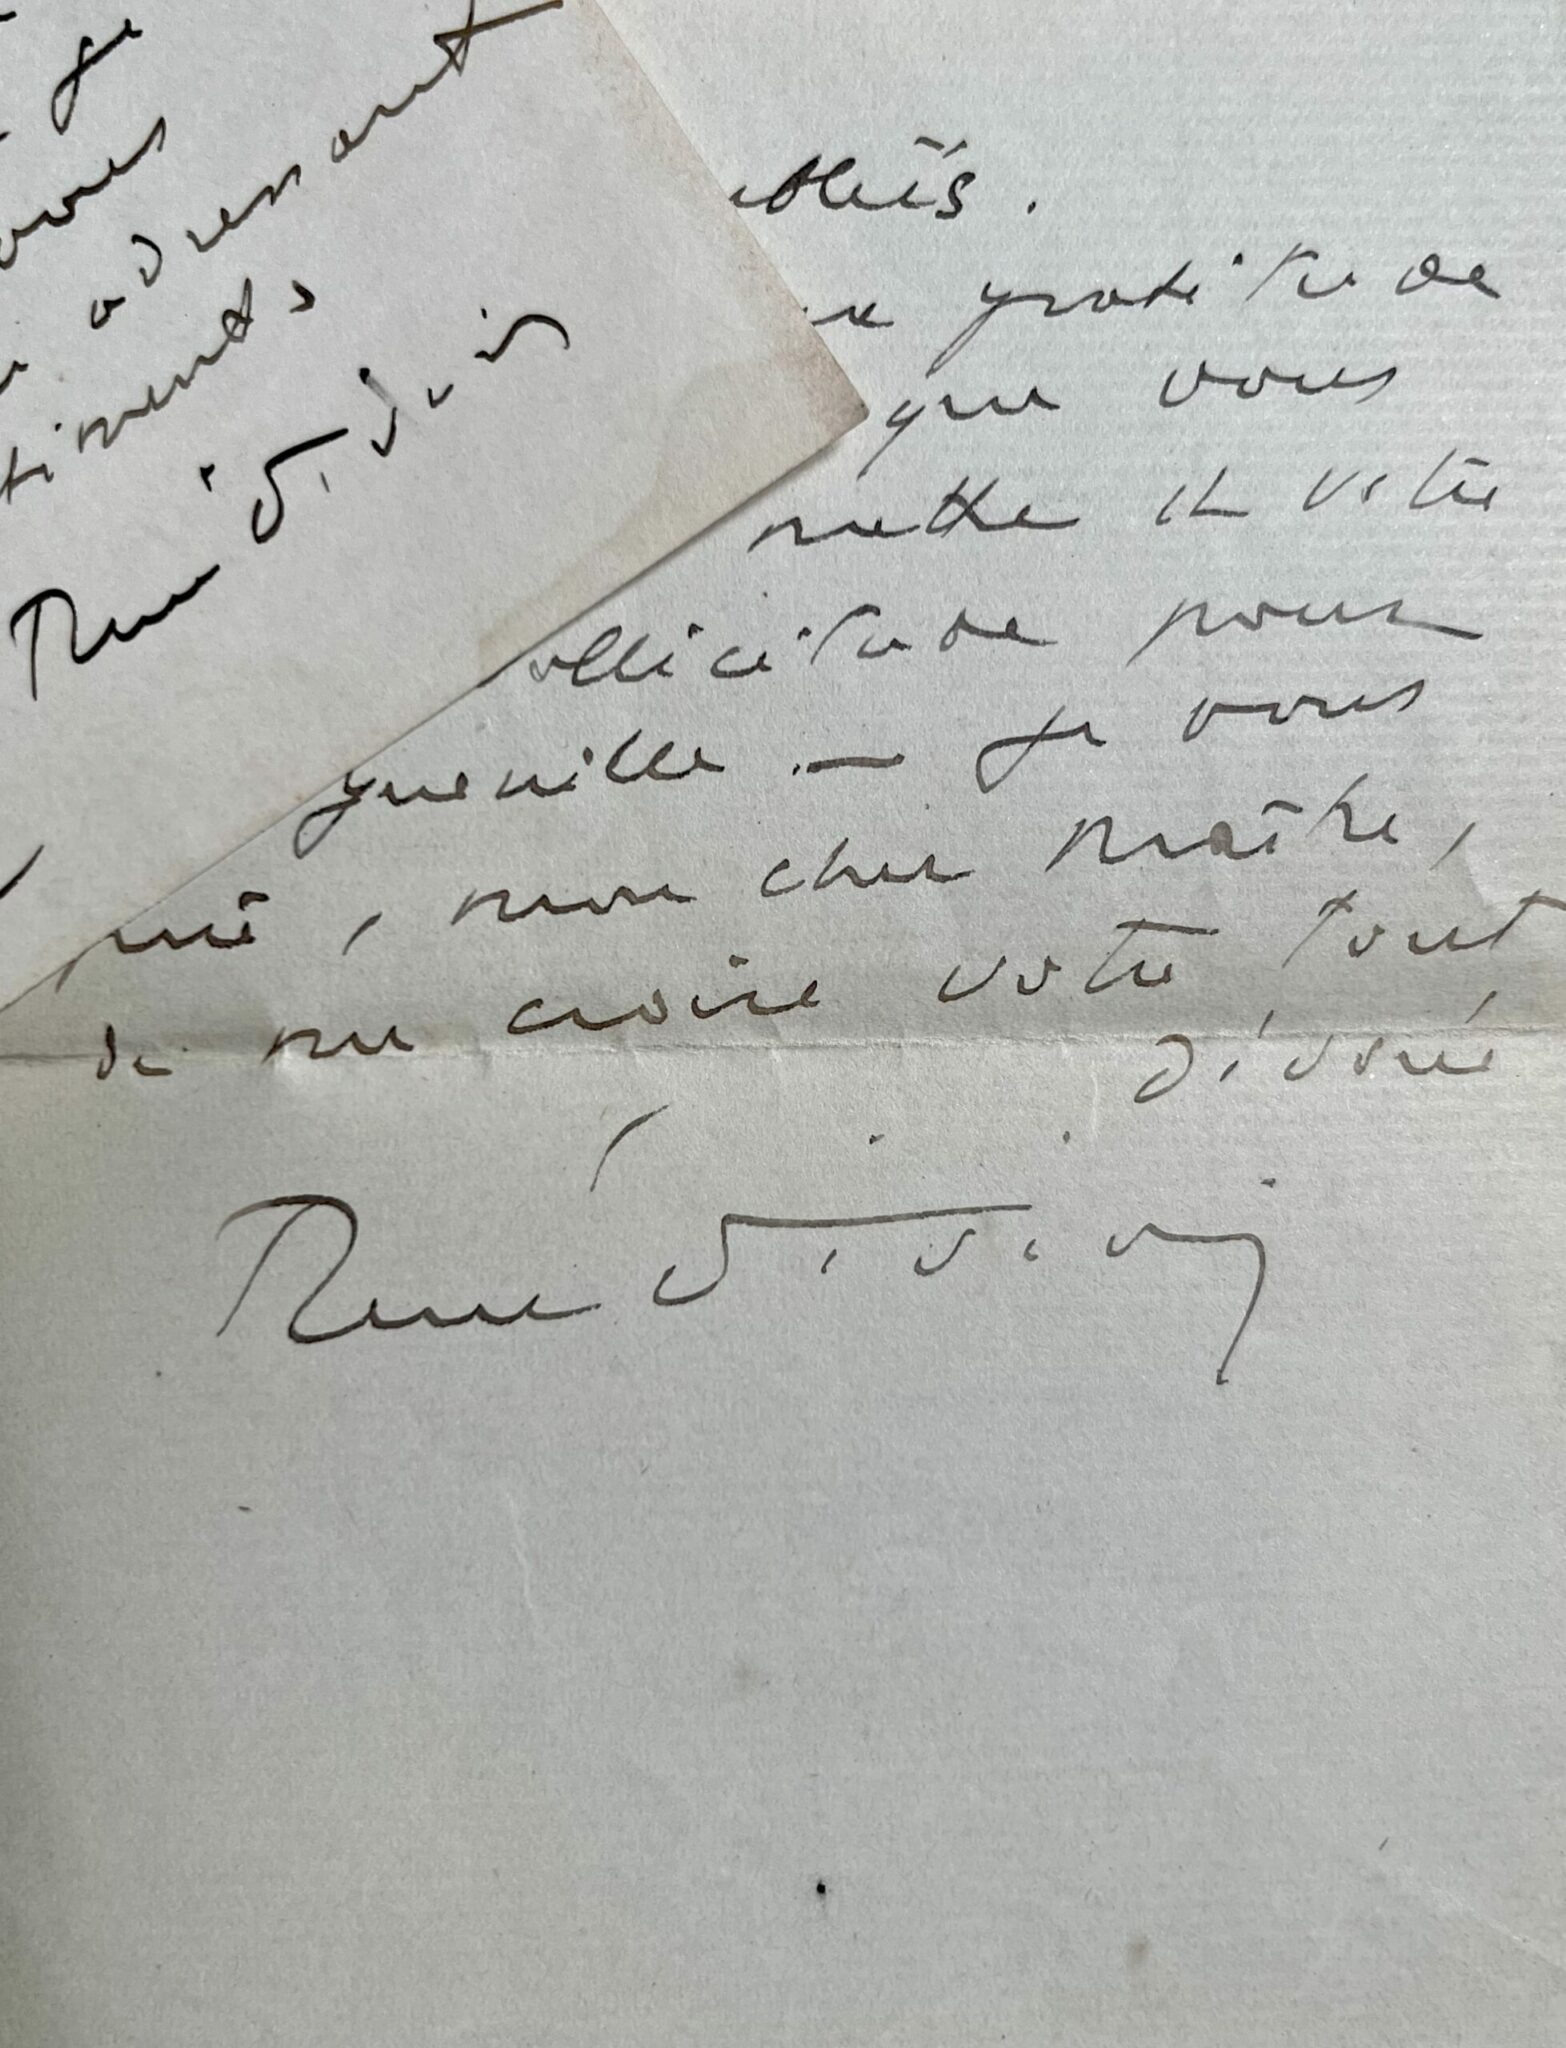 je
vous
adressant
timents
René
ubliés.
gratitude
que vous
mette et votre
ollicitude pour
guenille. — Je vous
prie, mon cher maître,
de me croire votre tout
dévoué
René